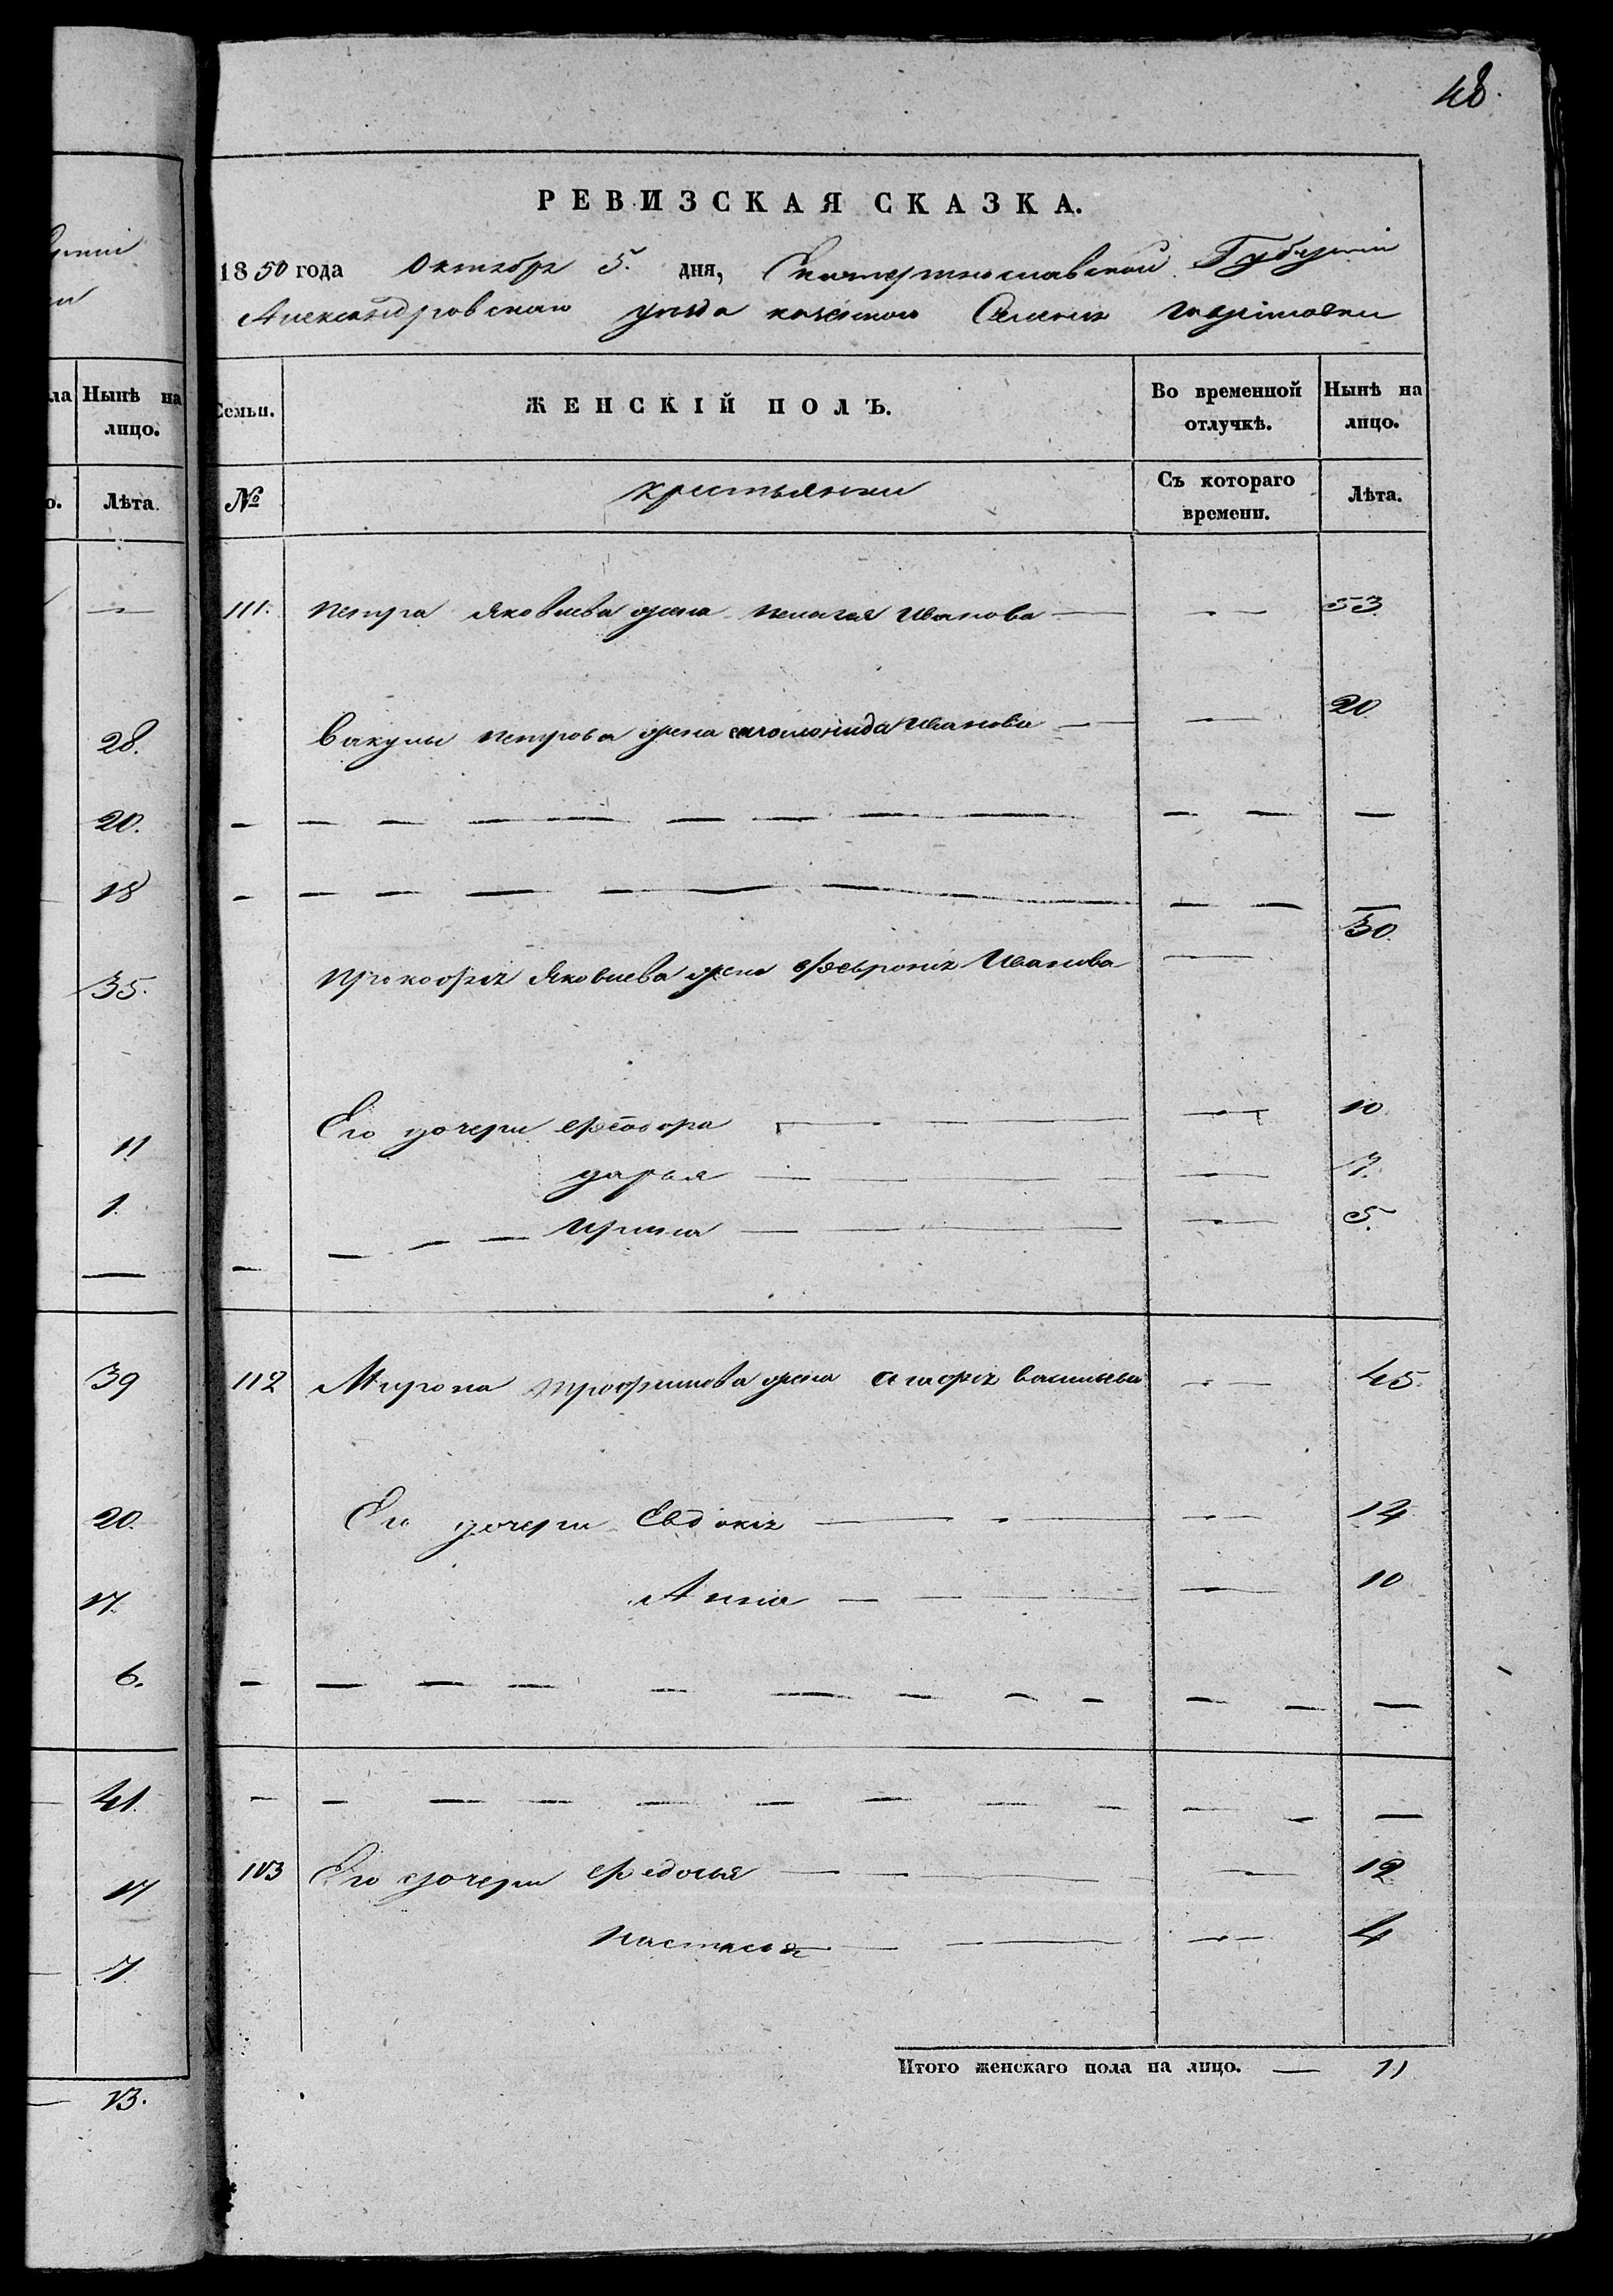 48.
РЕВИЗСКАЯ СКАЗКА.
1850 года Октября 5. дня, Екатеринославской Губерніи
Александровскаго уезда казенного Селенія
Семьи. ЖЕНСКІЙ ПОЛЪ. Во временной отлучкѣ. Нынѣ на лицо.
№ крестьянки Съ котораго времени. Лѣта.
111. петра Яковлева жена пелагея Иванова — — 53
вакулы петрова жена соломонида Иванова — — 20
прокофія Яковлева жена Февронія Иванова — 30
Его дочери Феодора — — 10
дарья — — 7.
Ирина — — 5.
112 Мирона трофимова жена агафія васильева — 45.
Его дочери Евдокія — — 14
Анна — — 10
113 Его дочери Федосья — — 12
настасья — — 4
Итого женскаго пола на лицо. — 11
ла Нынѣ на лицо.
о. Лѣта.
28.
20.
18
35.
11
1.
39
20.
17.
6.
41.
17
7.
13.